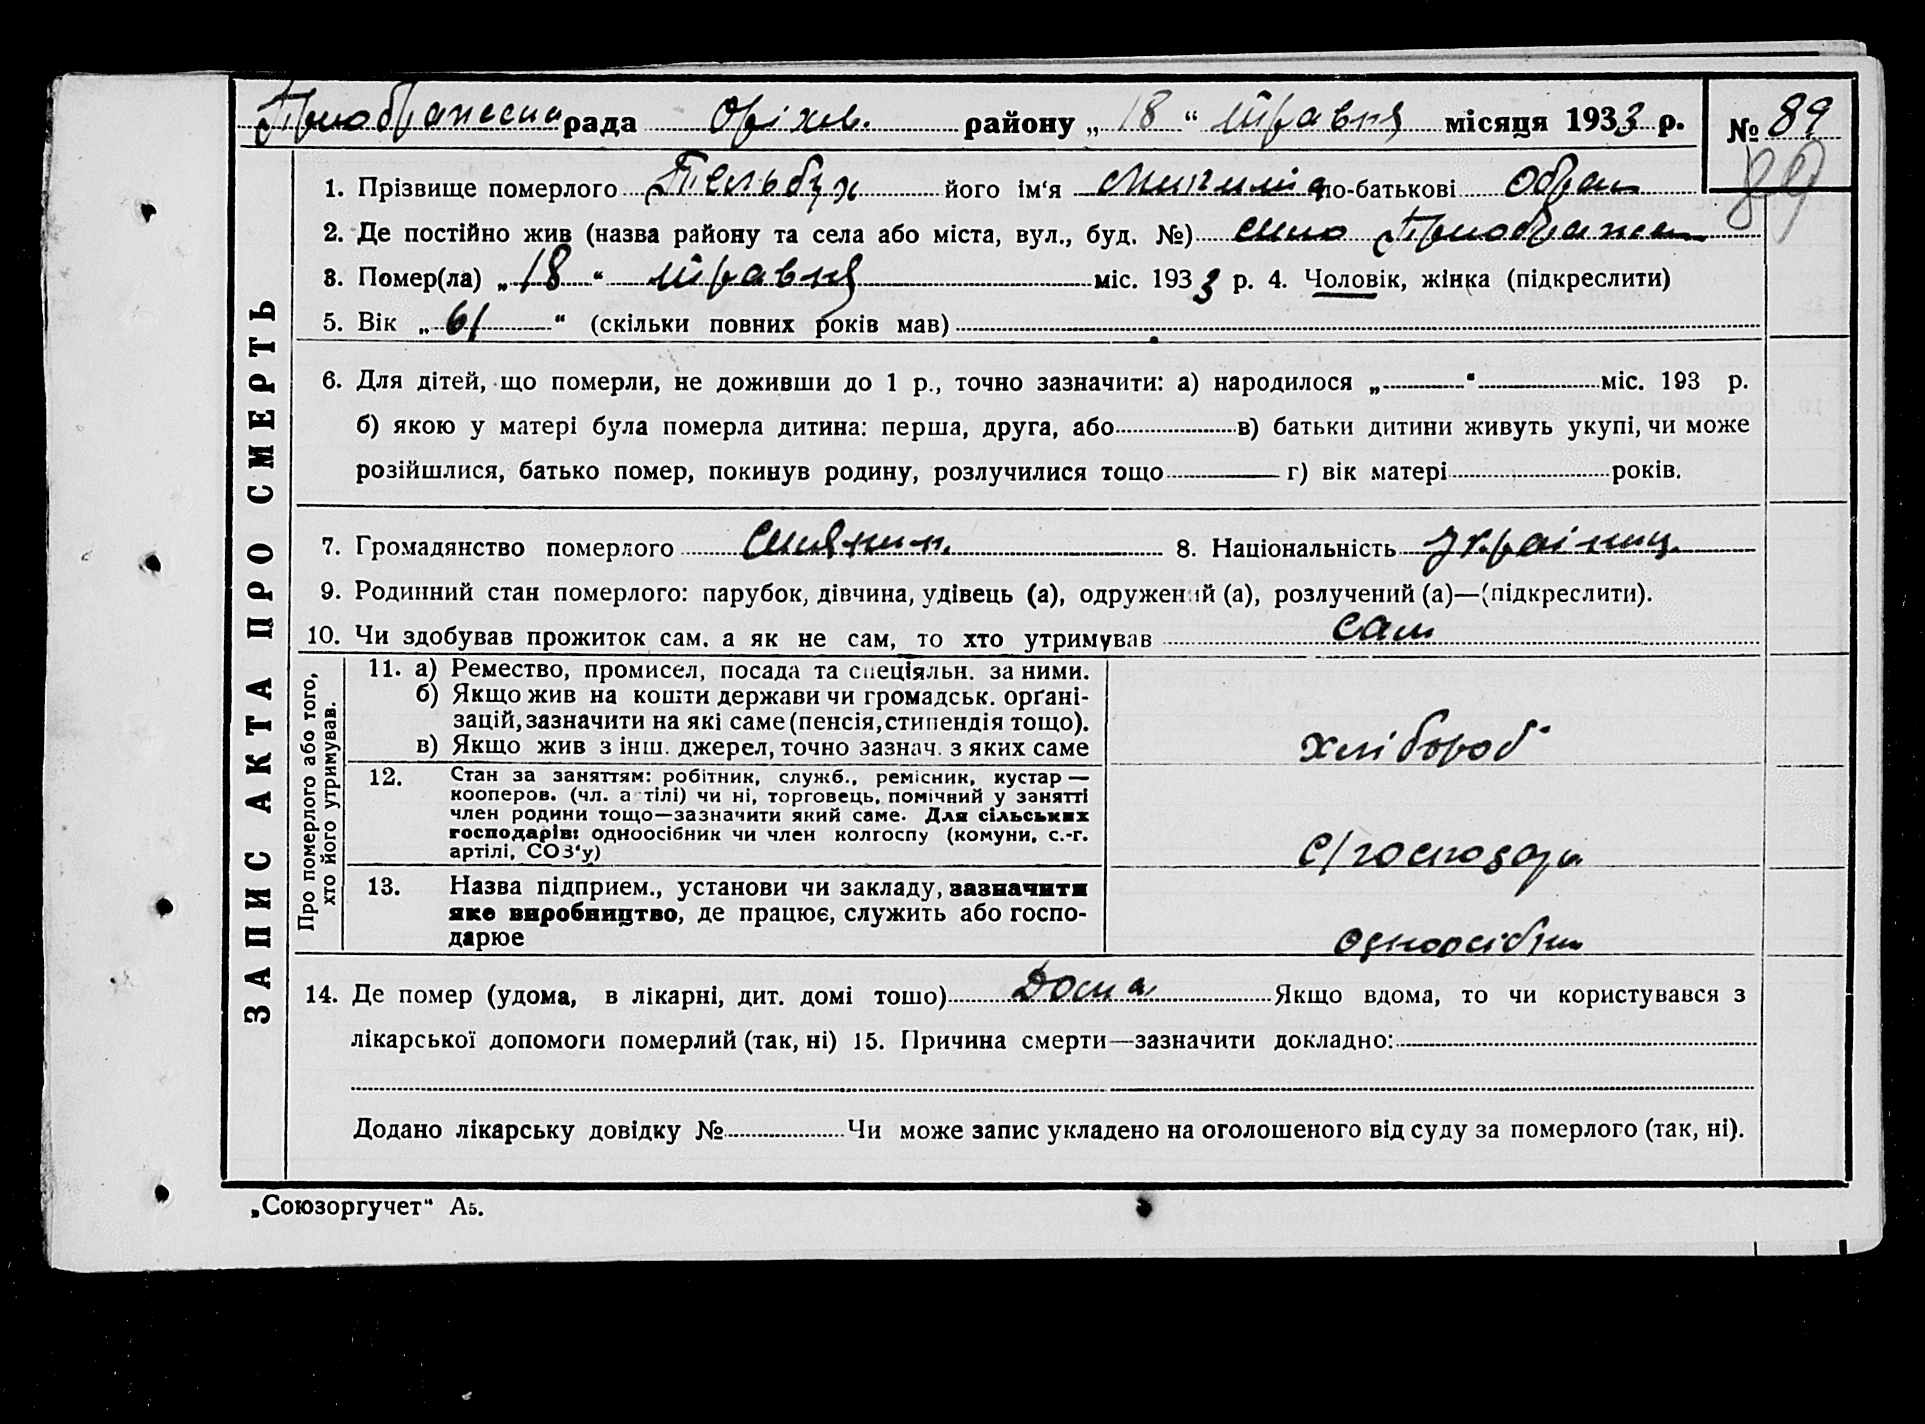 рада Оріхів. району „18“ травня місяця 1933 р. № 89
89
1. Прізвище померлого його ім‘я по-батькові
2. Де постійно жив (назва району та села або міста, вул., буд. №) село
3. Помер(ла) „18“ травня міс. 1933 р. 4. Чоловік, жінка (підкреслити)
5. Вік „61“ (скільки повних років мав)
6. Для дітей, що померли, не доживши до 1 р., точно зазначити: а) народилося „ “ міс. 193 р.
б) якою у матері була померла дитина: перша, друга, або в) батьки дитини живуть укупі, чи може
розійшлися, батько помер, покинув родину, розлучилися тощо г) вік матері років.
7. Громадянство померлого 8. Національність україниц.
9. Родинний стан померлого: парубок, дівчина, удівець (а), одружений (а), розлучений (а)—(підкреслити).
10. Чи здобував прожиток сам, а як не сам, то хто утримував сам
Про померлого або того, хто його утримував.
11. а) Ремество, промисел, посада та спеціяльн. за ними.
б) Якщо жив на кошти держави чи громадськ. орґані-
зацій, зазначити на які саме (пенсія, стипендія тощо).
в) Якщо жив з інш. джерел, точно зазнач. з яких саме
хлібороб
12. Стан за заняттям: робітник, служб., ремісник, кустар —
кооперов. (чл. артілі) чи ні, торговець, помічний у занятті
член родини тощо—зазначити який саме. Для сільських
господарів: одноосібник чи член колгоспу (комуни, с.-г.
артілі, СОЗ‘у)
с/господар
13. Назва підприєм., установи чи закладу, зазначити
яке виробництво, де працює, служить або госпо-
дарює
одноосібн
14. Де помер (удома, в лікарні, дит. домі тошо) Дома Якщо вдома, то чи користувався з
лікарської допомоги померлий (так, ні) 15. Причина смерти—зазначити докладно:
Додано лікарську довідку № Чи може запис укладено на оголошеного від суду за померлого (так, ні).
ЗАПИС АКТА ПРО СМЕРТЬ
„Союзоргучет“ А5.